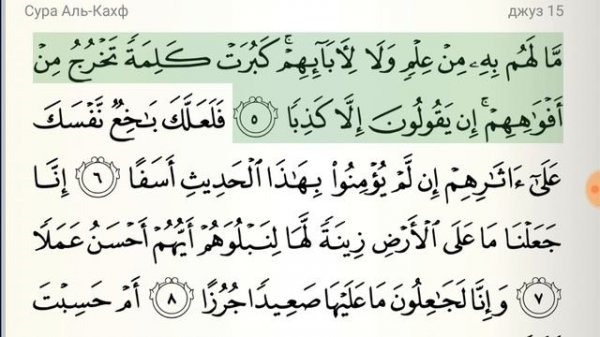 Сура Аль-Кахф джуз 15
مَّا لَهُم بِهِۦ مِنْ عِلْمٍ وَلَا لِأَبَآئِهِمْ ۚ كَبُرَتْ كَلِمَةً تَخْرُجُ مِنْ
أَفْوَٰهِهِمْ ۚ إِن يَقُولُونَ إِلَّا كَذِبًا ٥ فَلَعَلَّكَ بَـٰخِعٌ نَّفْسَكَ
عَلَىٰٓ ءَاثَـٰرِهِمْ إِن لَّمْ يُؤْمِنُوا۟ بِهَـٰذَا ٱلْحَدِيثِ أَسَفًا ٦ إِنَّا
جَعَلْنَا مَا عَلَى ٱلْأَرْضِ زِينَةً لَّهَا لِنَبْلُوَهُمْ أَيُّهُمْ أَحْسَنُ عَمَلًا
٧ وَإِنَّا لَجَـٰعِلُونَ مَا عَلَيْهَا صَعِيدًا جُرُزًا ٨ أَمْ حَسِبْتَ